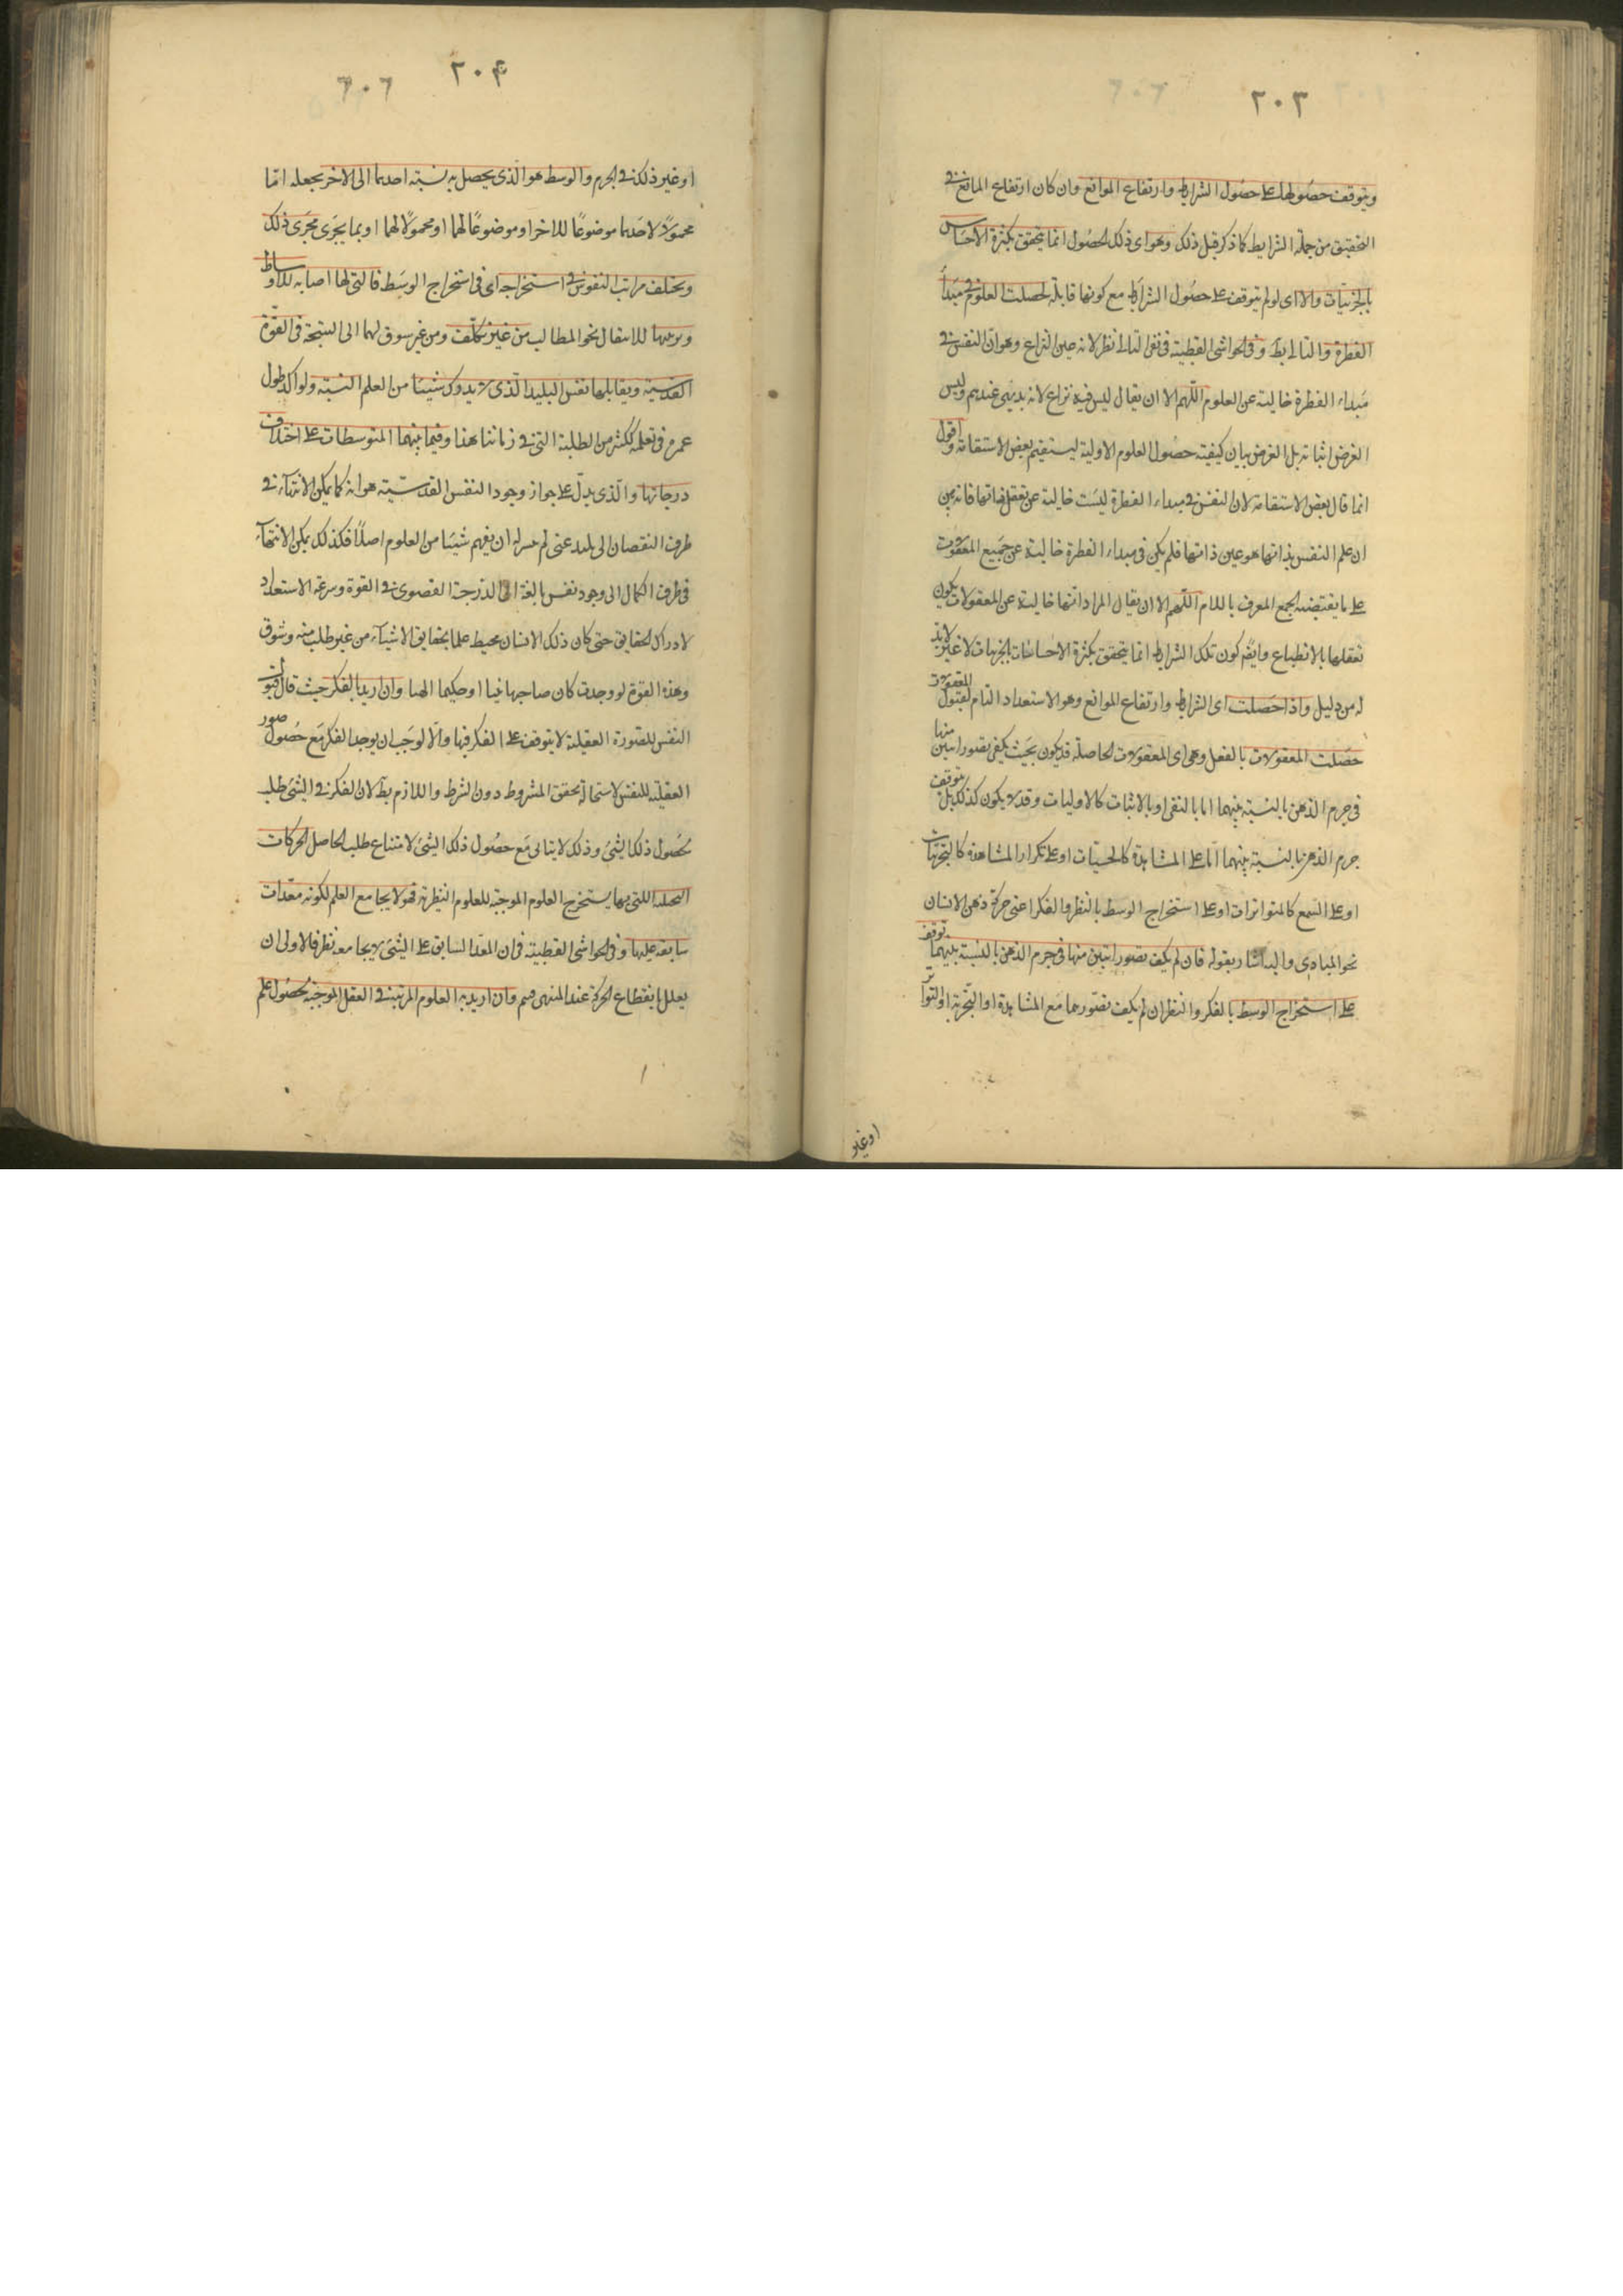 ٢٠٣
ويتوقف حصولها على حصول الشرايط وارتفاع الموانع وان كان ارتفاع المانع في
التحقيق من جملة الشرايط كما ذكر قبل ذلك وهو اى ذلك الحصول انما يتحقق بكثرة الاحساس
بالجزئيات والا اى لو لم يتوقف على حصول الشرايط مع كونها قابلة لحصلت العلوم في مبدأ
الفطرة والتالى بط وفى الحواشى القطبية فى نفى التالى نظر لانه عين النزاع وهو ان النفس في
مبداء الفطرة خالية عن العلوم اللهم الا ان يقال ليس فيه نزاع لانه بديهى عندهم وليس
الغرض اثباته بل الغرض بيان كيفية حصول العلوم الاولية ليستقيم بعض الاستقامة واقول
انما قال بعض الاستقامة لان النفس في مبداء الفطرة ليست خالية عن تعقل ذاتها فانه بين
ان علم النفس بذاتها هو عين ذاتها فلم يكن فى مبداء الفطرة خالية عن جميع المعقولات
على ما يقتضيه الجمع المعرف باللام اللهم الا ان يقال المراد انها خالية عن المعقولات يكون
تعقلها بالانطباع وايضا كون تلك الشرايط انما يتحقق بكثرة الاحساسات بالجزئيات لا غير لا بد
له من دليل واذا حصلت اى الشرايط وارتفاع الموانع وهو الاستعداد التام لقبول المعقولات
حصلت المعقولات بالفعل وهى اى المعقولات الحاصلة قد يكون بحيث يكفى تصور اثنين منها
فى جرم الذهن بالنسبة بينهما اما بالنفى او بالاثبات كالاوليات وقد لا يكون كذلك بل يتوقف
جرم الذهن بالنسبة بينهما اما على المشاهدة كالحسيات او على تكرار المشاهدة كالتجربيات
او على السمع كالمتواترات او على استخراج الوسط بالنظر والفكر اعنى حركة ذهن الانسان
نحو المبادى واليه اشار بقوله فان لم يكف تصور اثنين منها فى جرم الذهن بالنسبة بينهما توقف
على استخراج الوسط بالفكر والنظر ان لم يكف تصورهما مع المشاهدة او التجربة او التواتر
او غير
٢٠۴
٦٠٦
او غير ذلك في الجرم والوسط هو الذى يحصل به نسبة احدهما الى الاخر بجعله اما
محمولا لاحدهما موضوعا للاخر او موضوعا لهما او محمولا لهما او بما يجرى مجرى ذلك
ويختلف مراتب النفوس في استخراجه اى فى استخراج الوسط فالتى لها اصابة للاوساط
للانتقال نحو المطالب من غير تكلف ومن غير سوق لهما الى النتيجة فى القوة
القدسية ويقابلها نفس البليد الذى لا يدرك شيئا من العلم البتة ولو اكد طول
عمره فى تعلمه ككثير من الطلبة التى في زماننا هذا وفيما بينهما المتوسطات على اختلاف
درجاتها والذى يدل على جواز وجود النفس القدسية هو انه كما يمكن الانتهاء في
طرف النقصان الى بليد عنى لم يتيسر له ان يفهم شيئا من العلوم اصلا فكذلك يمكن الانتهاء
فى طرف الكمال الى وجود نفس بالغة الى الدرجة القصوى في القوة وسرعة الاستعداد
لادراك الحقايق حتى كان ذلك الانسان محيط علما بحقايق الاشياء من غير طلب منه وشوق
وهذه القوة لو وجدت كان صاحبها نبيا او حكيما الهيا وان اريد بالفكر حيث قال قبول
النفس للصورة العقلية لا يتوقف على الفكر فيها والا لوجب ان يوجد الفكر مع حصول صور
العقلية للنفس لاستحالة تحقق المشروط دون الشرط واللازم بط لان الفكر في الشئ طلب
حصول ذلك الشئ وذلك لا يتاتى مع حصول ذلك الشئ لامتناع طلب الحاصل الحركات
اللتى بها يستخرج العلوم الموجبة للعلوم النظرية فهو لا يجامع العلم لكونه معدات
سابقة عليها وفى الحواشى القطبية فى ان المعد السابق على الشئ لا يجامعه نظر فالاولى ان
يعلل بانقطاع الحركة عند المنتهى وان اريد به العلوم المرتبة في العقل الموجبة لحصول علم